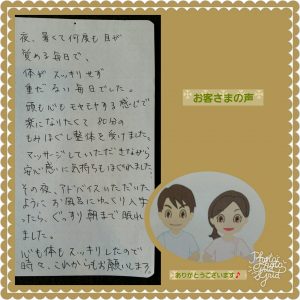 夜、暑くて何度も目が
覚める毎日で、
体が スッキリせず
重だるい毎日でした。
頭も心もモヤモヤする感じで
楽になりたくて 80分の
もみほぐし整体を受けました。
マッサージしていただきながら
安心感に気持ちもほぐれました。
その夜、アドバイスいただいた
ようにお風呂にゆっくり入
ったら、ぐっすり朝まで眠れ
ました。
心も体もスッキリしたので
時々、これからもお願いします。
お客さまの声
ありがとうございます♪
Photo
Grid